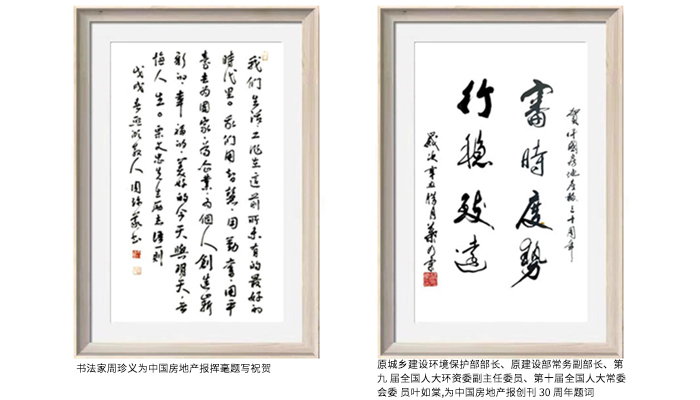 我们生活、工作在这前所未有的最好的
时代里。我们用智慧、用勤奋、用平
台去为国家、为企业、为个人创造崭
新的、幸福的、美好的今天與明天、无
悔人生。录文忠先生励志语一则
戊戌春
散人周珍义书
书法家周珍义为中国房地产报挥毫题写祝贺
贺中國房地产报三十周年
審時度勢
行穩致遠
歲次辛丑
月葉如棠
原城乡建设环境保护部部长、原建设部常务副部长、第
九 届全国人大环资委副主任委员、第十届全国人大常委
会委 员叶如棠,为中国房地产报创刊 30 周年题词